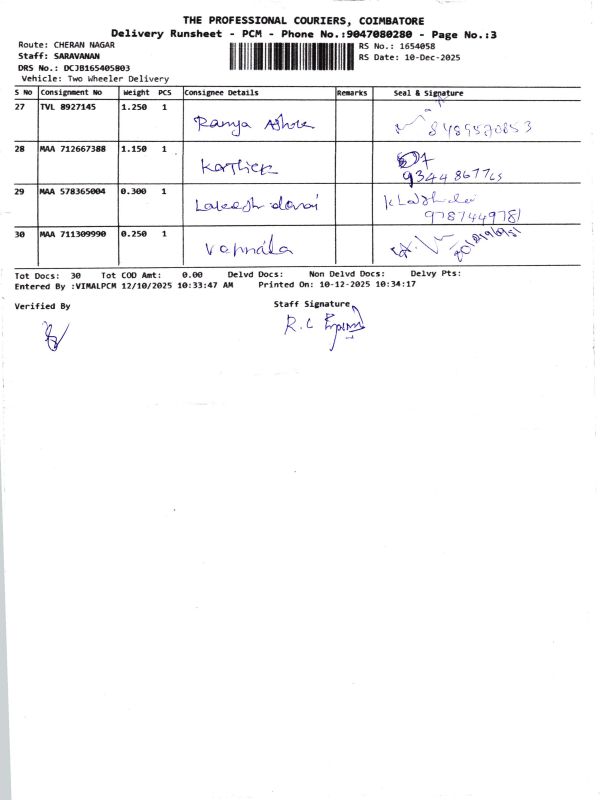 THE PROFESSIONAL COURIERS, COIMBATORE
Delivery Runsheet - PCM - Phone No.:9047080280 - Page No.:3
Route: CHERAN NAGAR
RS No.: 1654058
Staff: SARAVANAN
RS Date: 10-Dec-2025
DRS No.: DCJB165405803
Vehicle: Two Wheeler Delivery
S No Consignment No Weight PCS Consignee Details Remarks Seal & Signature
27 TVL 8927145 1.250 1
Ramya 8489570853
28 MAA 712667388 1.150 1
Karthick
29 MAA 578365004 0.300 1
9787449781
30 MAA 711309990 0.250 1
Tot Docs: 30 Tot COD Amt: 0.00 Delvd Docs: Non Delvd Docs: Delvy Pts:
Entered By :VIMALPCM 12/10/2025 10:33:47 AM Printed On: 10-12-2025 10:34:17
Verified By
Staff Signature
R.C